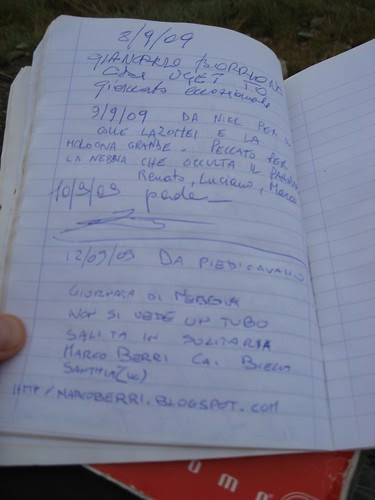 8/9/09
GIANCARLO
CAI UGET TO
giornata eccezionale
9/9/09 DA NIEL POR IL
COLLE LAZONEI E LA
MOLOGNA GRANDE. PECCATO PER
LA NEBBIA CHE OCCULTA IL
Renato, Luciano, Marco
10/9/09
12/09/09 DA PIEDICAVALLO
GIORNATA DI NEBBIA
NON SI VEDE UN TUBO
SALITA IN SOLITARIA
MARCO BERRI CAI BIELLA
SANTHIÀ (VC)
HTTP/MARCOBERRI.BLOGSPOT.COM